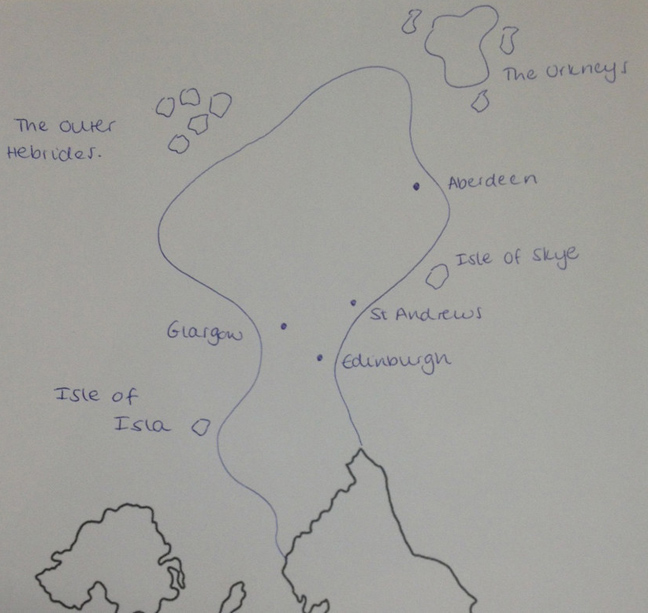 The Orkneys
The Outer
Hebrides.
Aberdeen
Isle of Skye
St Andrews
Glasgow
Edinburgh
Isle of
Isla